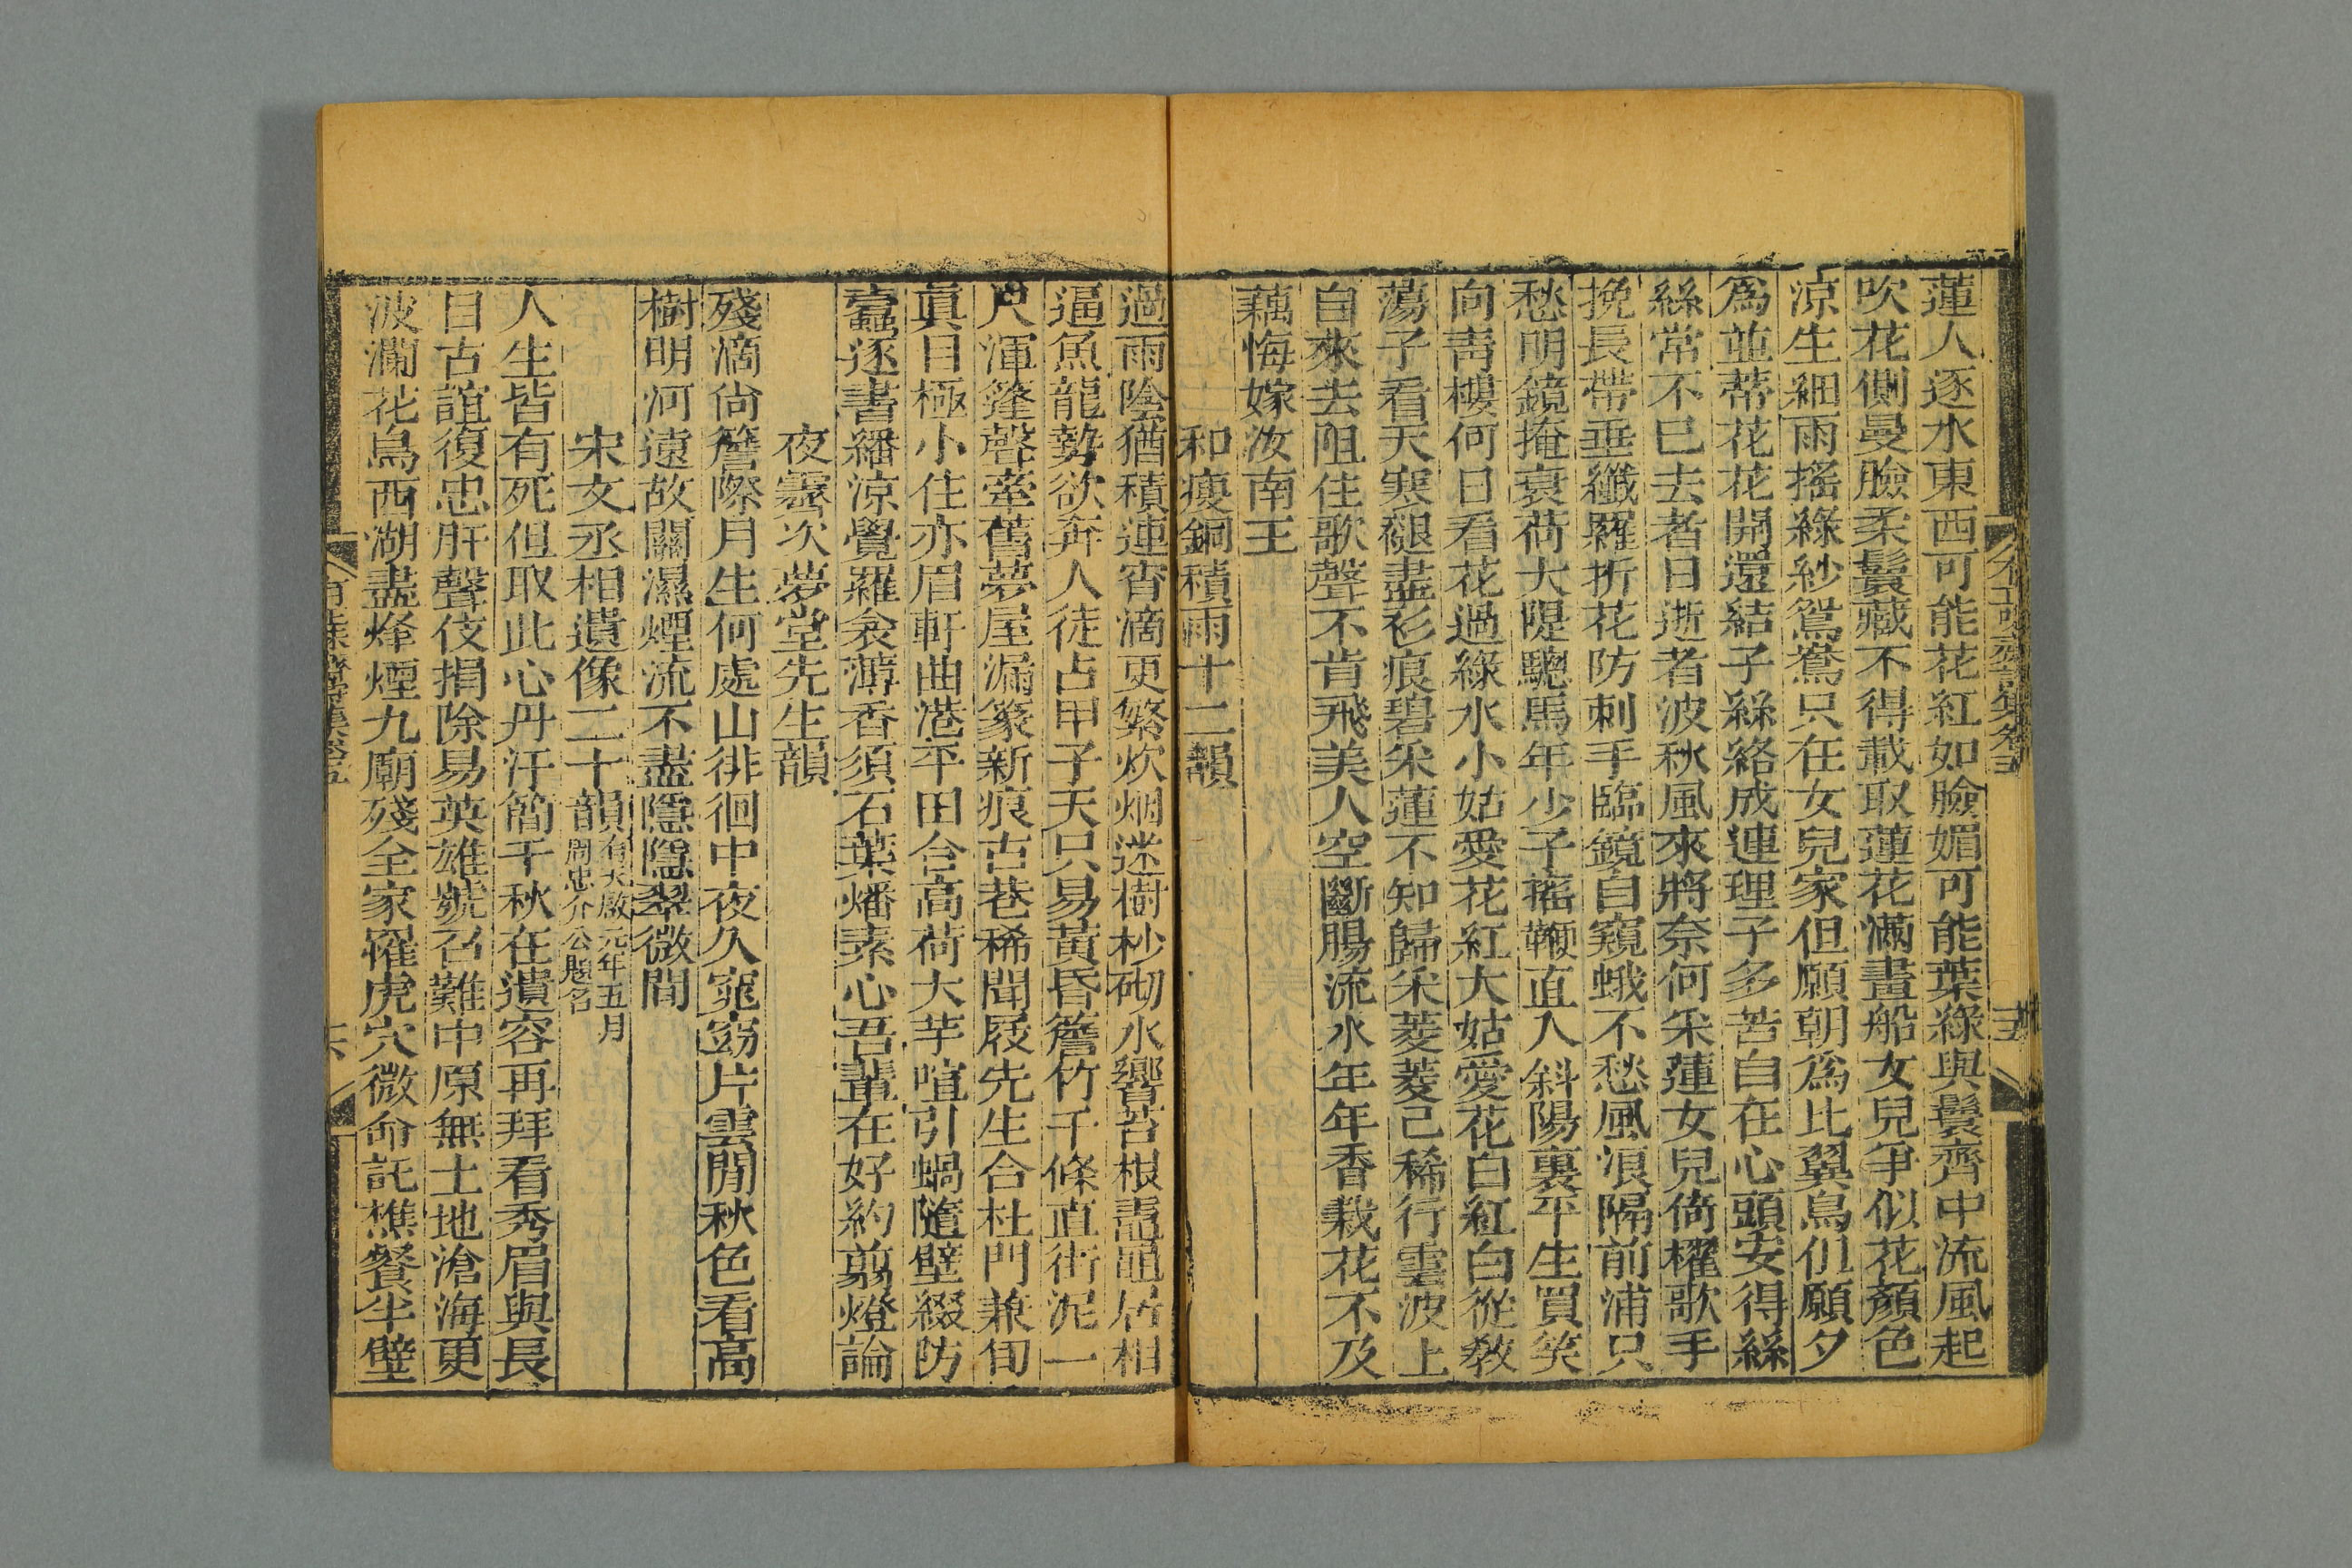 蓮人逐水東西可能花紅如臉媚可能葉綠與鬟齊中流風起
吹花側曼臉柔鬟藏不得載取蓮花滿畫船女兒爭似花顏色
涼生細雨搖綠紗鴛鴦只在女兒家但願朝爲比翼鳥但願夕
爲並蒂花花開還結子絲絡成連理子多苦自在心頭安得絲
絲常不已去者日逝者波秋風來將奈何采蓮女兒倚櫂歌手
挽長帶垂纖羅折花防刺手臨鏡自窺蛾不愁風浪隔前浦只
愁明鏡掩衰荷大隄驄馬年少子搖鞭直入斜陽裏平生買笑
向靑樓何日看花過綠水小姑愛花紅大姑愛花白紅白從教
蕩子看天寒褪盡衫痕碧采蓮不知歸采菱菱已稀行雲波上
自來去阻住歌聲不肯飛美人空斷腸流水年年香栽花不及
藕悔嫁汝南王
和瘦銅積雨十二韻
過雨陰猶積連宵滴更繁炊烟迷樹杪砌水響苔根黿黽居相
逼魚龍勢欲奔人徒占甲子天只易黃昏簷竹千條直街泥一
尺渾篷聲牽舊夢屋漏篆新痕古巷稀聞屐先生合杜門兼旬
眞目極小住亦眉軒曲港平田合高荷大芋喧引蝸隨壁綴防
蠹逐書繙涼覺羅衾薄香須石葉燔素心吾輩在好約翦燈論
夜霽次夢堂先生韻
殘滴尙簷際月生何處山徘徊中夜久窕窈片雲閒秋色看高
樹明河遠故關濕煙流不盡隱隱翠微間
宋文丞相遺像二十韻有天啟元年五月周忠介公題名
人生皆有死但取此心丹汗簡千秋在遺容再拜看秀眉與長
目古誼復忠肝聲伎捐除易英雄號召難中原無土地滄海更
波瀾花鳥西湖盡烽煙九廟殘全家罹虎穴微命託樵餐半壁